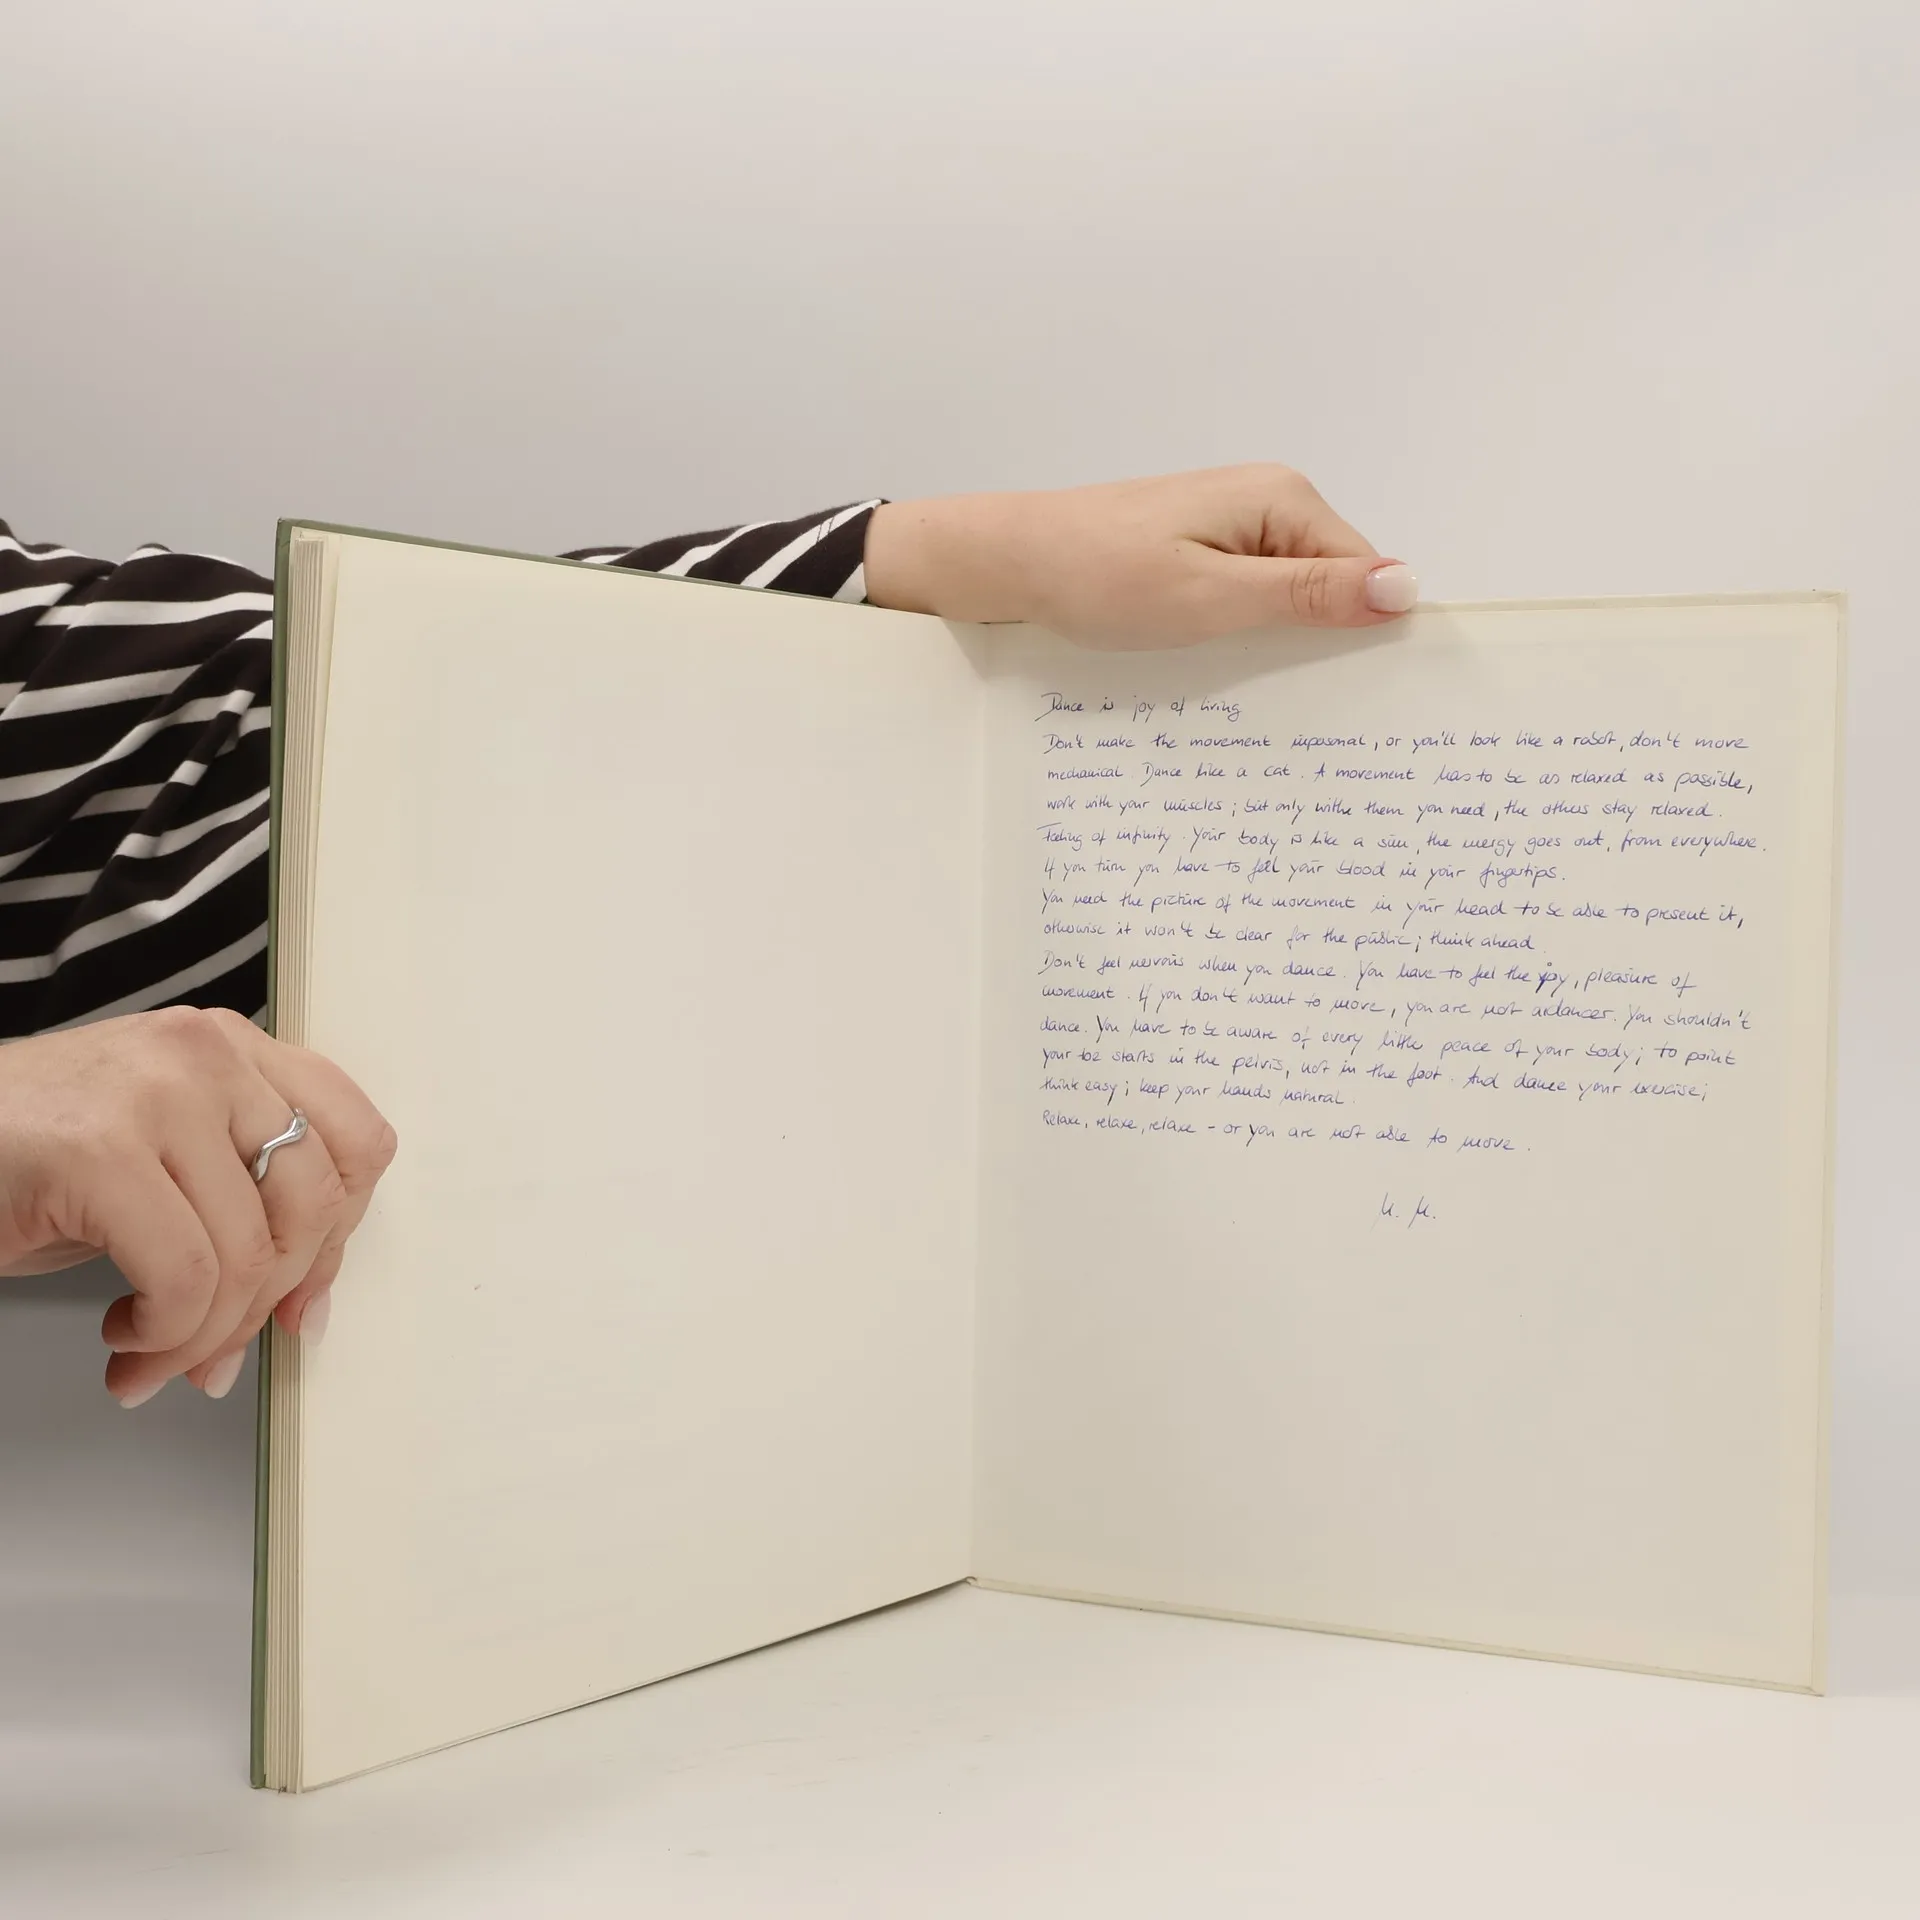 Dance is joy of living
Don't make the movement inposonal, or you'll look like a robot, don't move
mechanical. Dance like a cat. A movement has to be as relaxed as possible,
work with your muscles; but only withe them you need, the others stay relaxed.
Feeling of infinity. Your body is like a sun, the energy goes out, from everywhere.
If you turn you have to feel your blood in your fingertips.
You need the picture of the movement in your head to be able to present it,
otherwise it won't be clear for the public; think ahead.
Don't feel nervous when you dance. You have to feel the joy, pleasure of
movement. If you don't want to move, you are not a dancer. You shouldn't
dance. You have to be aware of every little peace of your body; to point
your toe starts in the pelvis, not in the foot. And dance your exercise;
think easy; keep your hands natural.
Relaxe, relaxe, relaxe - or you are not able to move.